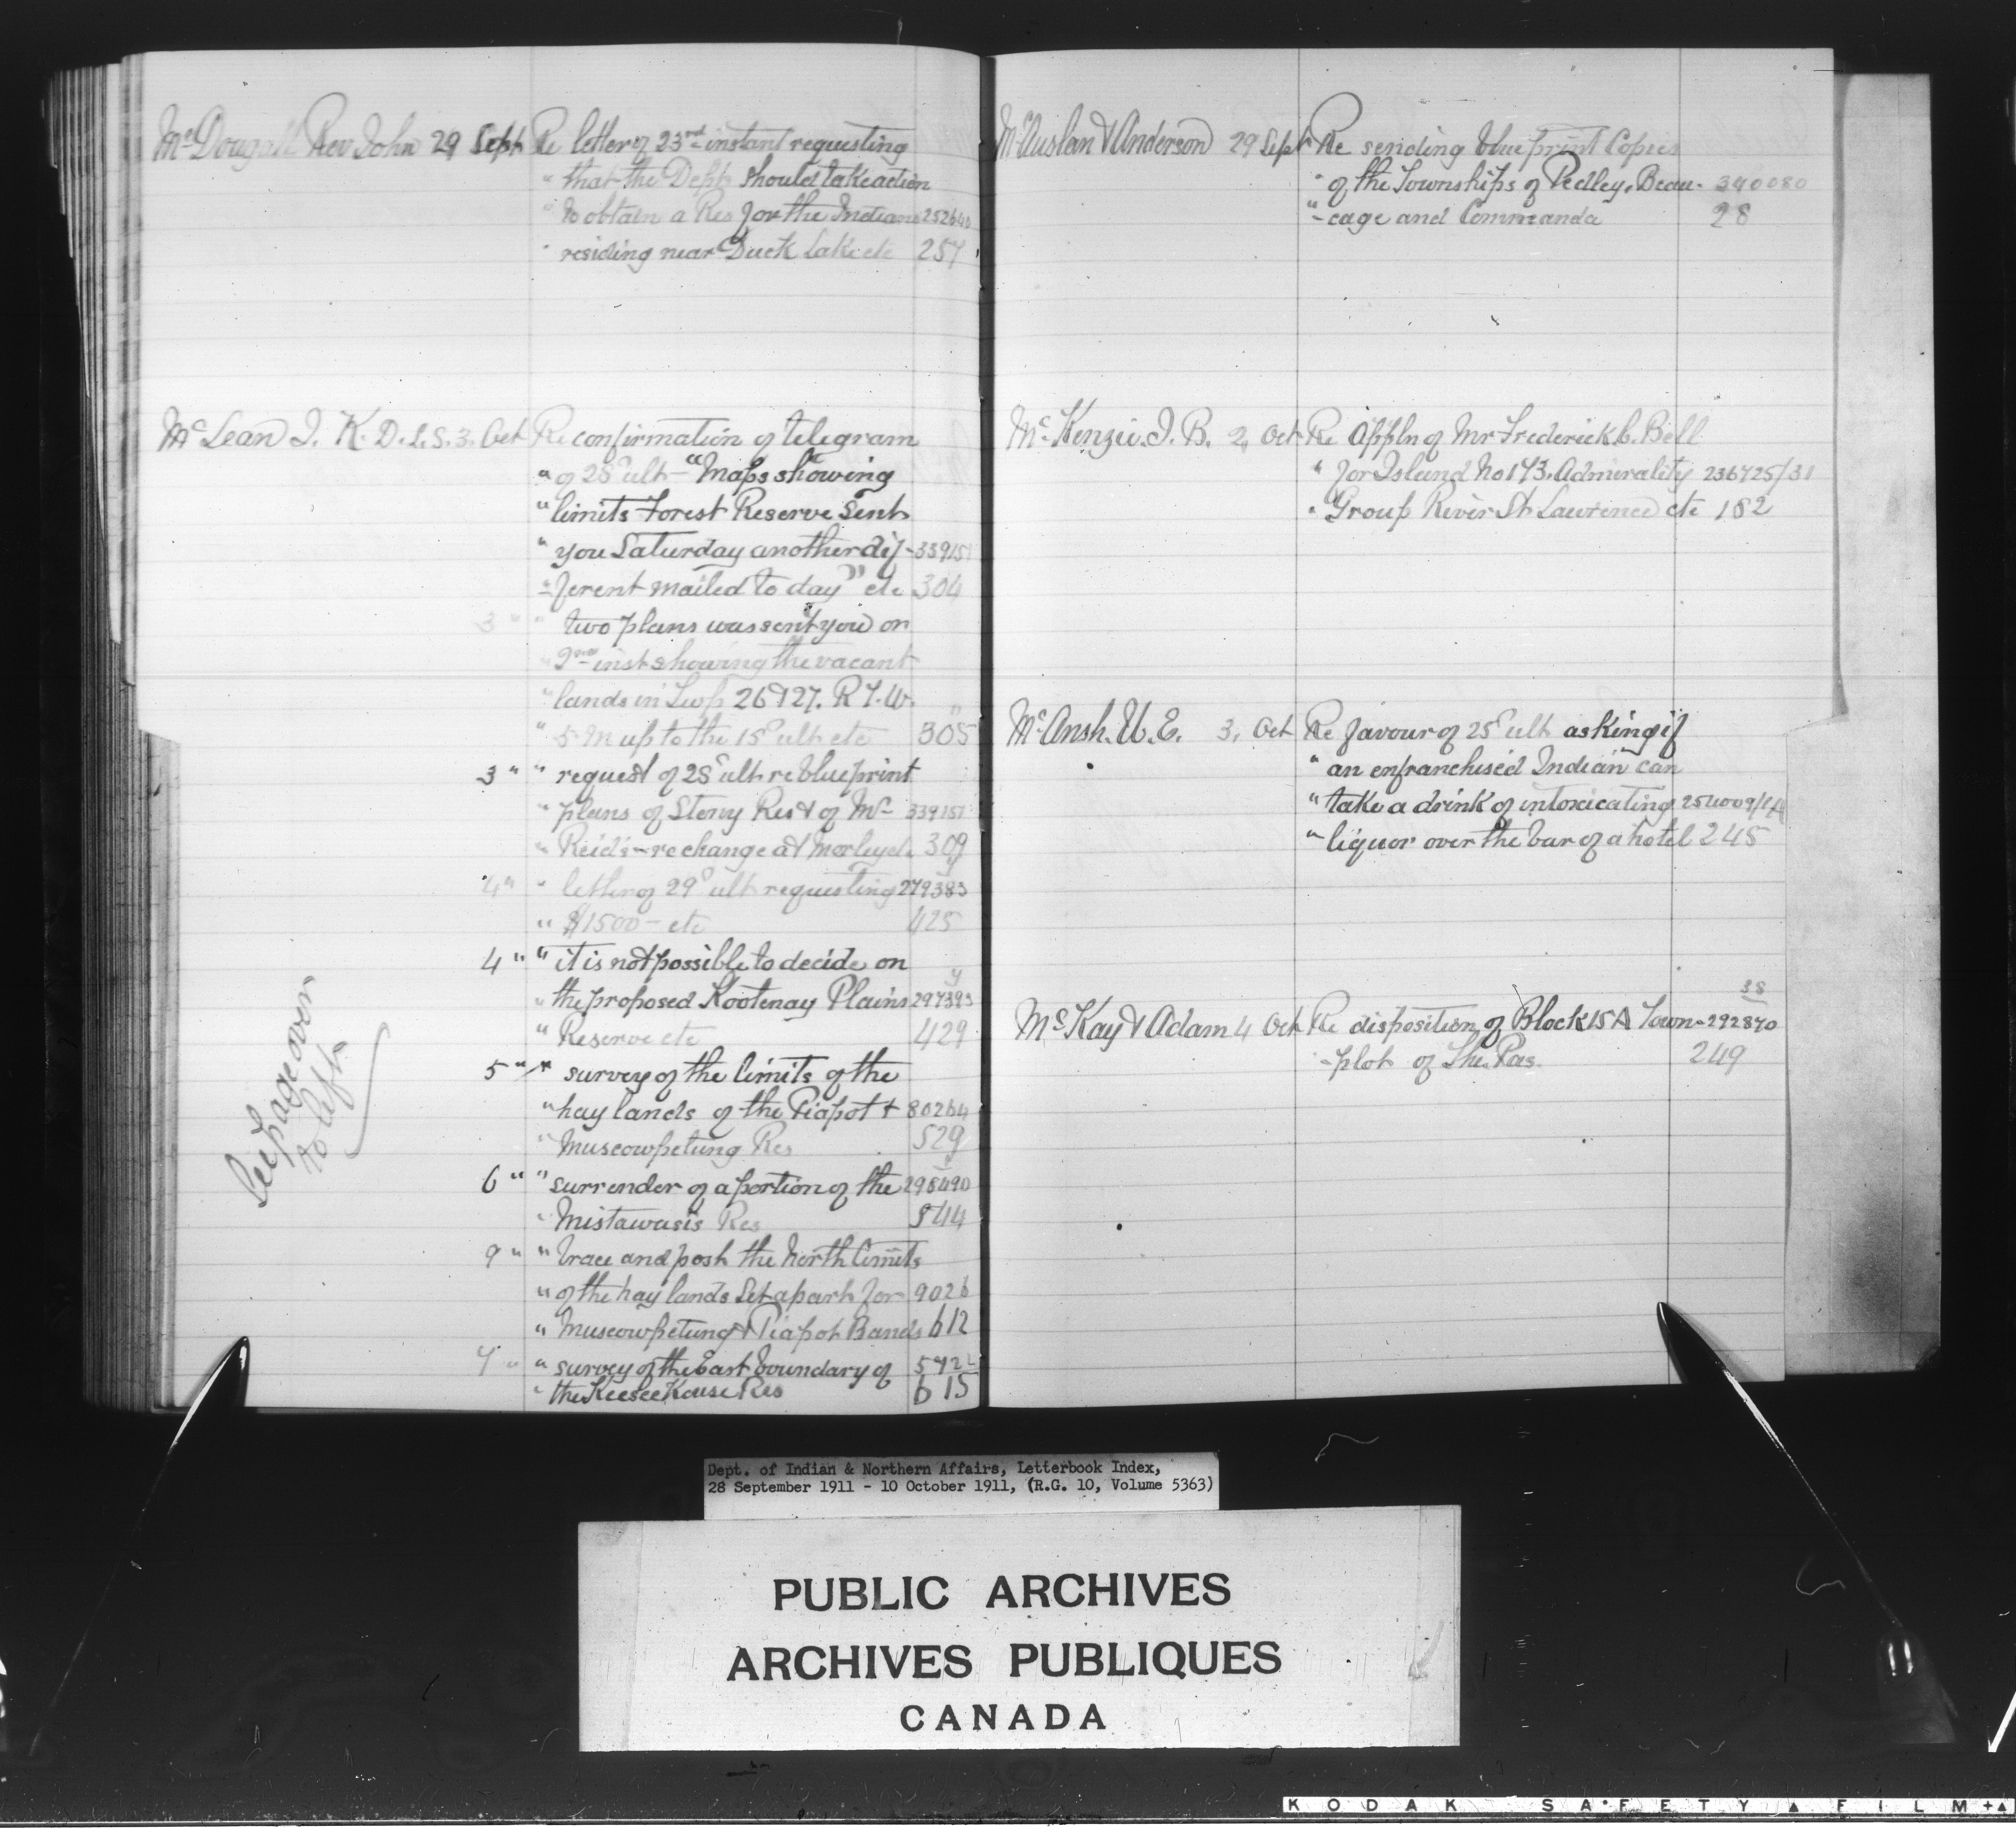 McDougall Rev John 29 Sept Re letter of 23rd instant requesting
" that the Dept should take action
" to obtain a Res for the Indians 252640
" residing near Duck Lake etc 257
McLean J. K. D.L.S. 3. Oct Re confirmation of telegram
" of 28" ult - "Maps showing
" limits Forest Reserve Sent
" you Saturday another dif- 339151
" -ferent mailed to day" etc 304
3 " " two plans was sent you on
" 2nd inst showing the vacant
" lands in Twp 26 & 27. R 7. W. "
" 5 M up to the 15" ult etc 305
3 " " request of 28" ult re blueprint
" plans of Stony Res & of Mc- 339151
" Reid's - re change at Morley etc 309
4 " " letter of 29" ult requesting 279383
" $1500 - etc 425
4 " " it is not possible to decide on
" the proposed Kootenay Plains 297393
" Reserve etc 429
5 " " survey of the limits of the
" hay lands of the Piapot & 80264
" Muscowpetung Res 529
6 " " surrender of a portion of the 298490
" Mistawasis Res 544
9 " " trace and post the North limits
" of the hay lands Set apart for 9026
" Muscowpetung & Piapot Bands 612
7 " " survey of the East boundary of 572
" the KeeseeKouse Res 615
See page over
to left
McAuslan & Anderson 29 Sept Re sending blue print Copies
" of the Townships of Pedley, Beau- 390080
" -cage and Commanda 28
McKenzie. J. B. 2, Oct Re Appln of Mr Frederick C. Bell
" for Island No 173. Admirality 236725/31
" Group River St Lawrence etc 182
McAnsh. U. E. 3, Oct Re favour of 25" ult asking if
" an enfranchised Indian can
" take a drink of intoxicating 254009/14
" liquor over the bar of a hotel 245
38
McKay & Adam 4 Oct Re disposition of Block 15A Town- 292870
-plot of The Pas. 249
Dept. of Indian & Northern Affairs, Letterbook Index,
28 September 1911 - 10 October 1911, (R.G. 10, Volume 5363)
PUBLIC ARCHIVES
ARCHIVES PUBLIQUES
CANADA
KODAK SAFETY FILM